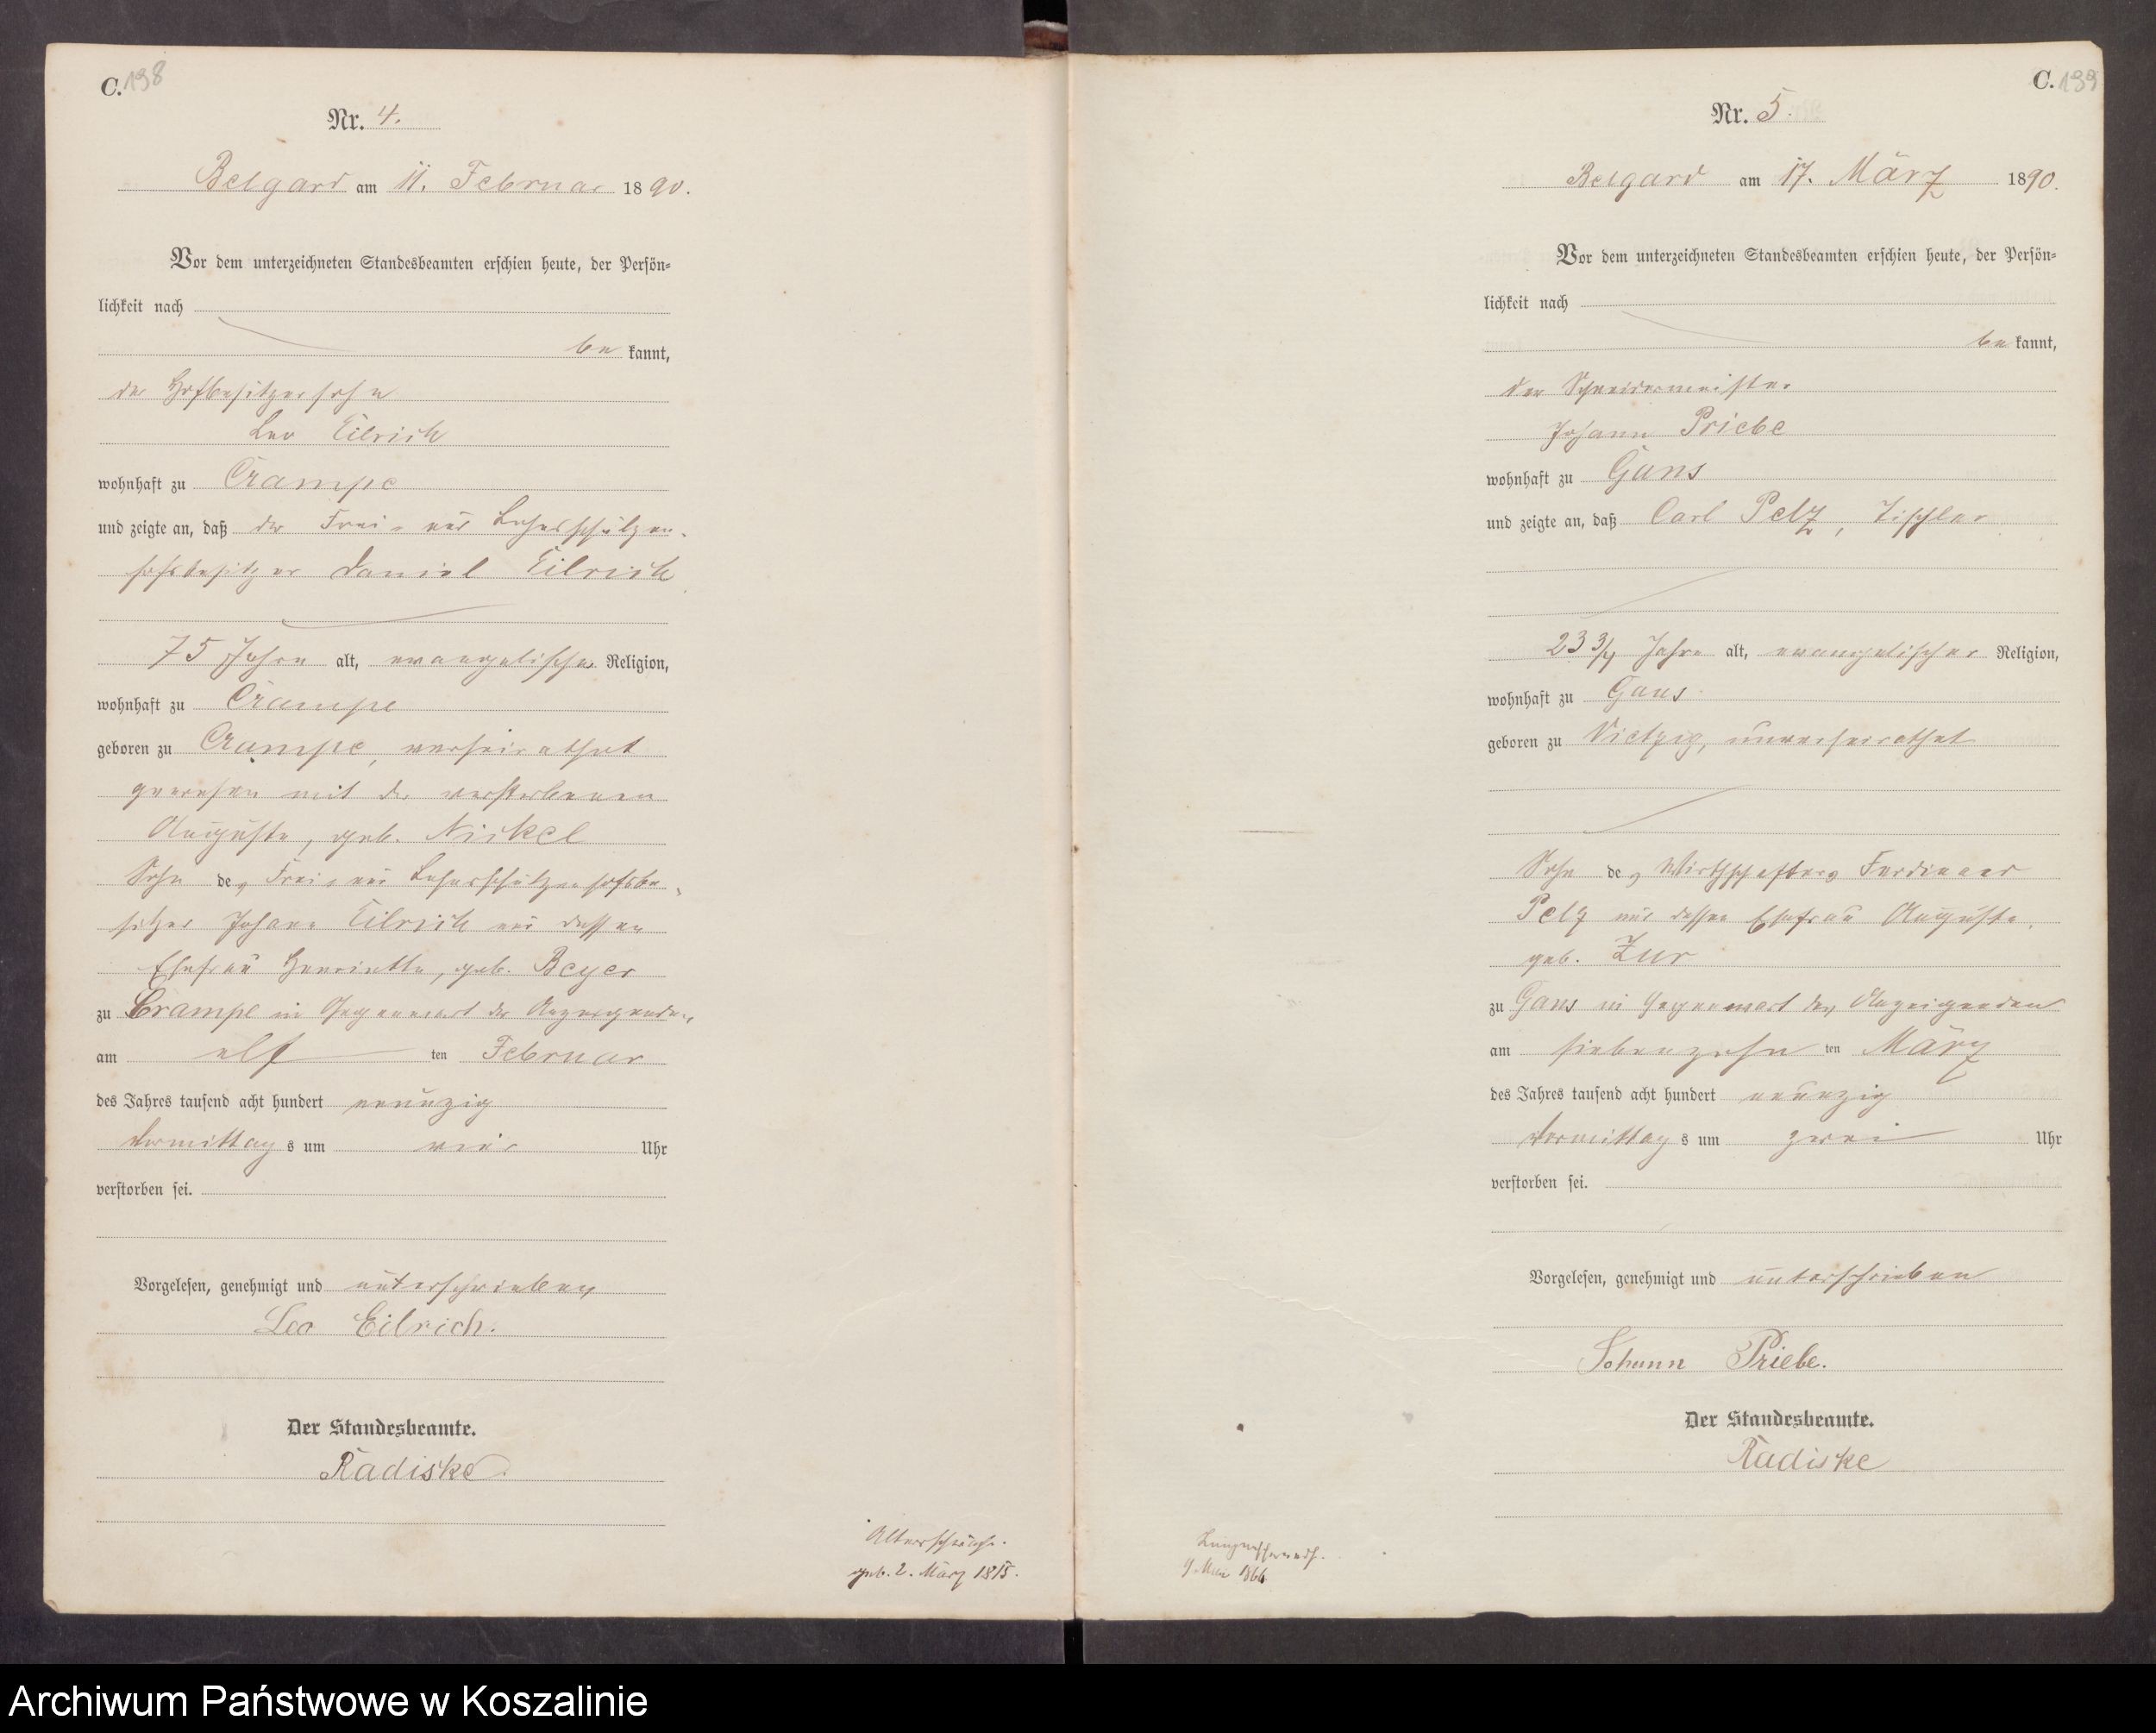 C. 198
Nr. 4.
Belgard am 11. Februar 1890.
Vor dem unterzeichneten Standesbeamten erschien heute, der Persön-
lichkeit nach
be kannt,
der Hofbesitzersohn
Leo Eilrich
wohnhaft zu Crampe
und zeigte an, daß der Frei- und Lehnschulzen-
hofsbesitzer Daniel Eilrich
75 Jahre alt, evangelischer Religion,
wohnhaft zu Crampe
geboren zu Crampe, verheirathet
gewesen mit der verstorbenen
Auguste, geb. Nickel
Sohn des Frei- und Lehnschulzenhofsbe-
sitzer Johann Eilrich und dessen
Ehefrau Henriette, geb. Beyer
zu Crampe in Gegenwart des Anzeigenden,
am elf ten Februar
des Jahres tausend acht hundert neunzig
Vormittag s um vier Uhr
verstorben sei.
Vorgelesen, genehmigt und unterschrieben
Leo Eilrich.
Der Standesbeamte.
Radiske
Altersschwäche.
geb. 2. März 1815.
C. 199
Nr. 5.
Belgard am 17. März 1890.
Vor dem unterzeichneten Standesbeamten erschien heute, der Persön-
lichkeit nach
be kannt,
der Schneidermeister
Johann Priebe
wohnhaft zu Gans
und zeigte an, daß Carl Pelz, Tischler
23 3/4 Jahre alt, evangelischer Religion,
wohnhaft zu Gans
geboren zu Vietzig, unverheirathet
Sohn des Wirthschafters Ferdinand
Pelz und dessen Ehefrau Auguste,
geb. Zur
zu Gans in Gegenwart des Anzeigenden
am siebenzehn ten März
des Jahres tausend acht hundert neunzig
Vormittag s um zwei Uhr
verstorben sei.
Vorgelesen, genehmigt und unterschrieben
Johann Priebe.
Der Standesbeamte.
Radiske
1866
Archiwum Państwowe w Koszalinie